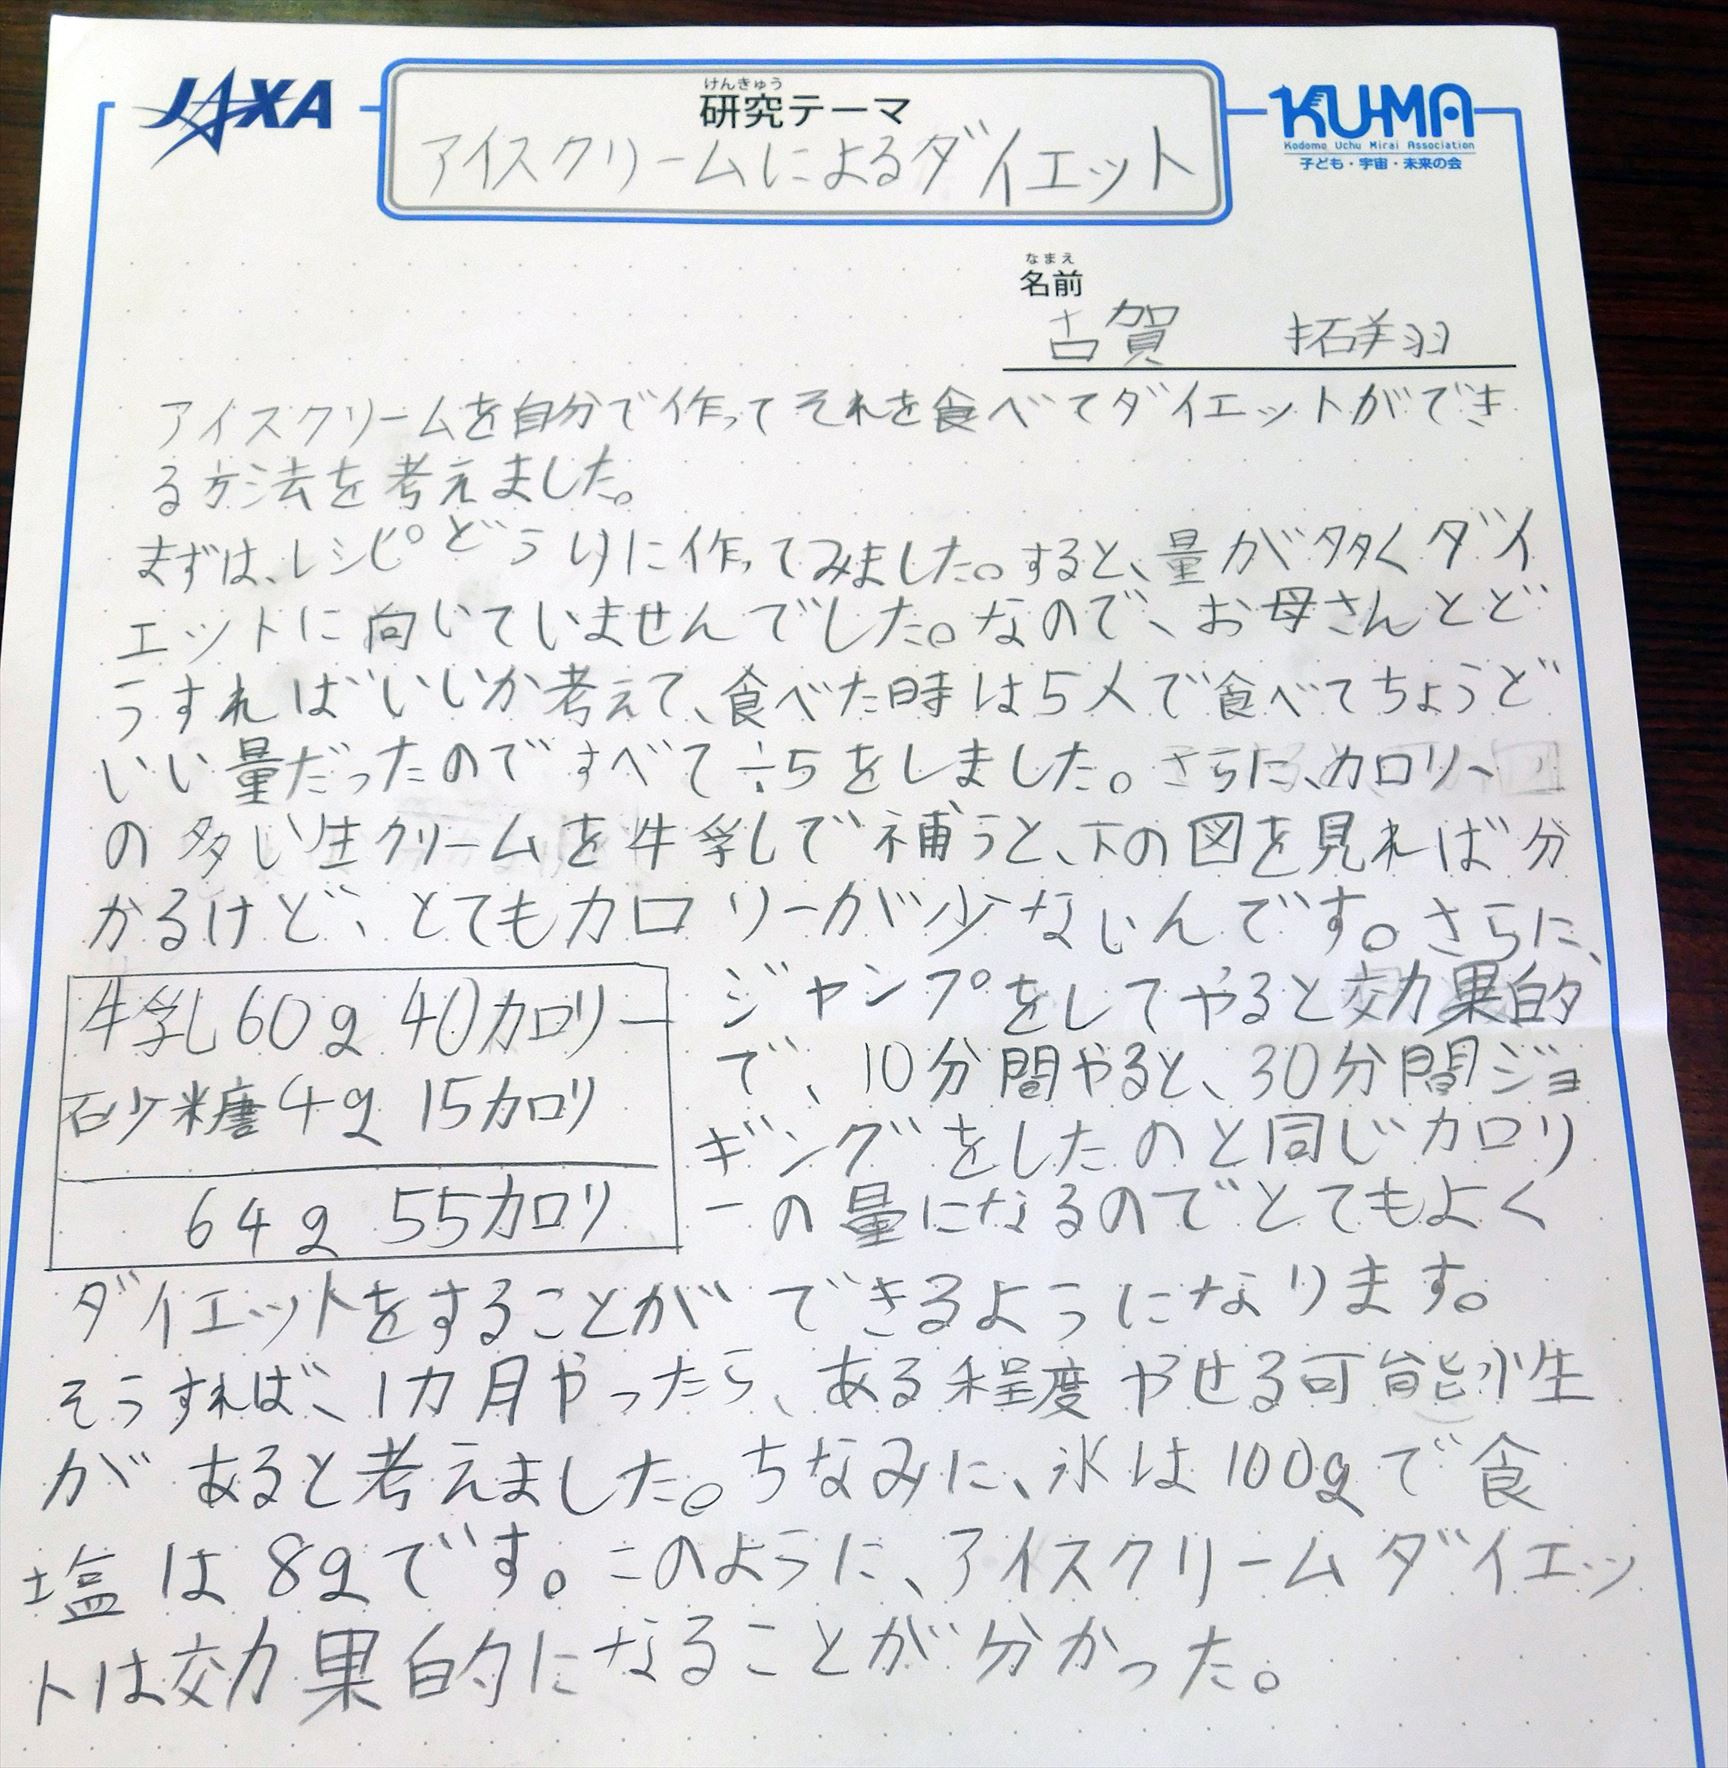 JAXA
けんきゅう
研究テーマ
KU-MA
Kodomo Uchu Mirai Association
子ども・宇宙・未来の会
アイスクリームによるダイエット
なまえ
名前
古賀 拓美羽
アイスクリームを自分で作ってそれを食べてダイエットができ
る方法を考えました。
まずは、レシピどうりに作ってみました。すると、量が多くダイ
エットに向いていませんでした。なので、お母さんとど
うすればいいか考えて、食べた時は5人で食べてちょうど
いい量だったのですべて÷5をしました。さらに、カロリー
の多い生クリームを牛乳で補うと、下の図を見れば分
かるけど、とてもカロリーが少ないんです。さらに、
牛乳60g 40カロリー
砂糖4g 15カロリ
64g 55カロリ
ジャンプをしてやると効果的
で、10分間やると、30分間ジョ
ギングをしたのと同じカロリ
ーの量になるのでとてもよく
ダイエットをすることができるようになります。
そうすれば、1カ月やったら、ある程度やせる可能性
があると考えました。ちなみに、氷は100gで食
塩は8gです。このように、アイスクリームダイエッ
トは効果的になることが分かった。